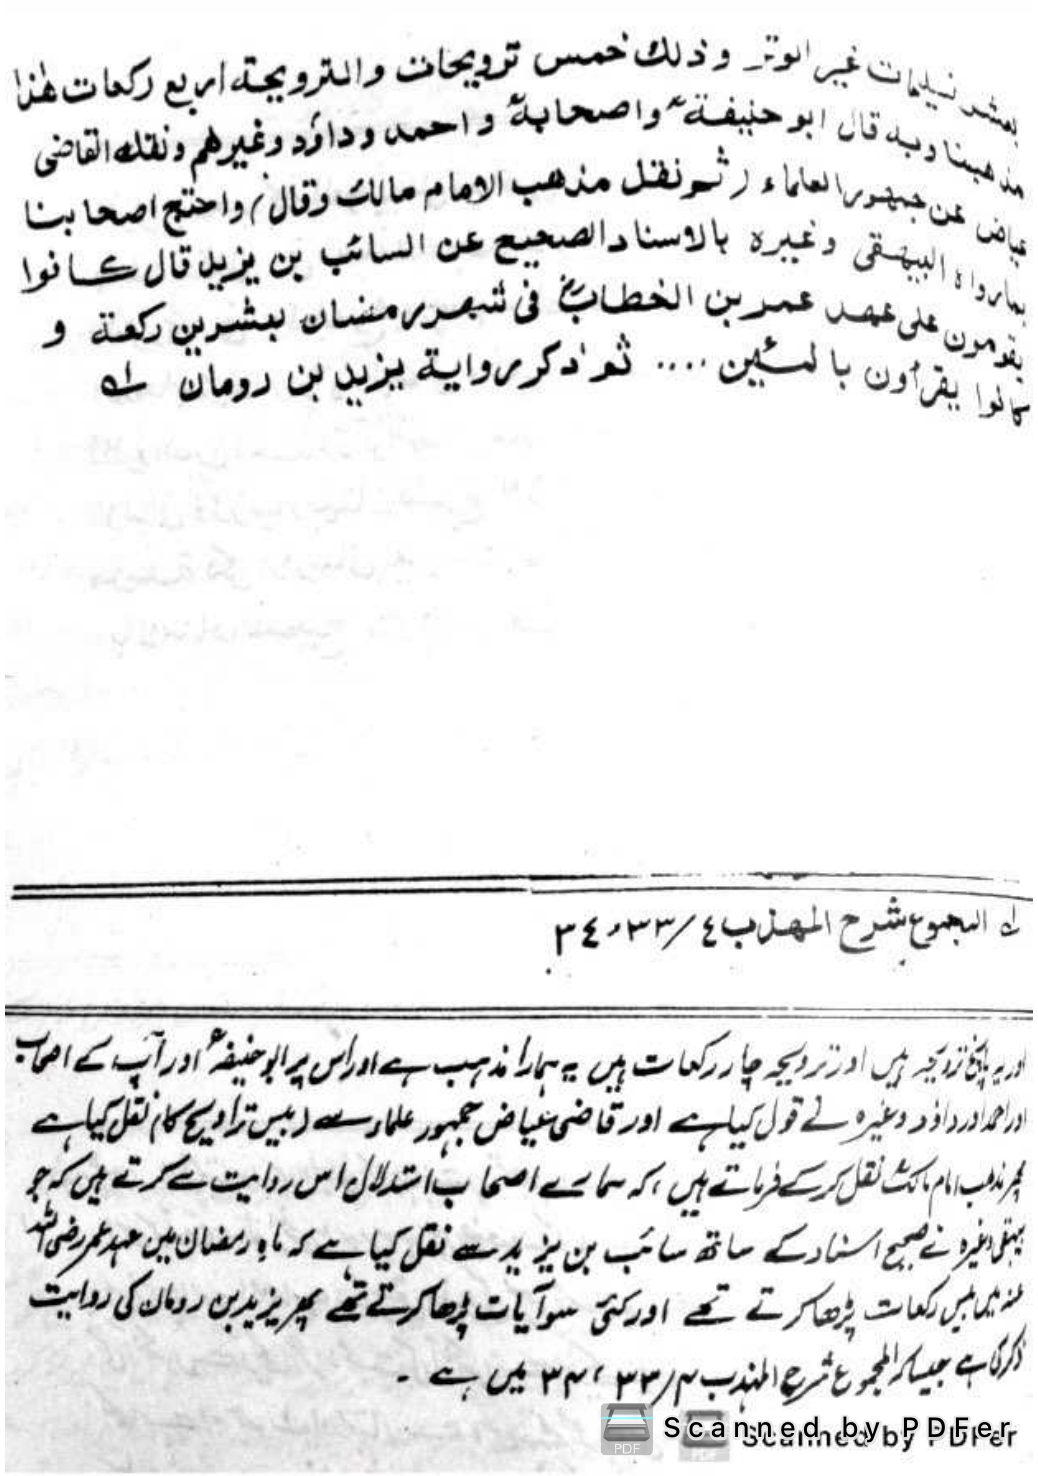 بعشر تسلیمات غیر الوتر وذلك خمس ترویحات والترویحة اربع رکعات هٰذا
مذهبنا وبه قال ابو حنیفة ؒ واصحابهٗ واحمد وداؤد وغیرهم ونقله القاضی
عیاض عن جمهور العلماء ( ثم نقل مذهب الامام مالك وقال ) واحتج اصحابنا
بما رواه البیهقی وغیره بالاسناد الصحیح عن السائب بن یزید قال کانوا
یقومون علی عهد عمر بن الخطابؓ فی شهر رمضان بعشرین رکعة و
کانوا یقرأون بالمئین .... ثم ذکر روایة یزید بن رومان لہ
لہ المجموع شرح المهذب ٤/٣٣، ٣٤
اور یہ پانچ ترویحہ ہیں اور ترویحہ چار رکعات ہیں یہ ہمارا مذہب ہے اور اس پر ابوحنیفہ ؒ اور آپ کے اصحاب
اور احمد اور داؤد وغیرہ نے قول کیا ہے اور قاضی عیاض جمہور علماء سے (بیس تراویح کا) نقل کیا ہے
پھر مذہب امام مالکؒ نقل کرکے فرماتے ہیں ، کہ ہمارے اصحاب استدلال اس روایت سے کرتے ہیں کہ جو
بیہقی وغیرہ نے صحیح اسناد کے ساتھ سائب بن یزید سے نقل کیا ہے کہ ماہ رمضان میں عہد عمر رضی اللہ
عنہ میں بیس رکعات پڑھا کرتے تھے اور کئی سو آیات پڑھا کرتے تھے پھر یزید بن رومان کی روایت
ذکر کی ہے جیسا کہ المجموع شرح المہذب ۴/۳۳ ، ۳۴ میں ہے ۔
Scanned by PDFer
Scanned by PDFer